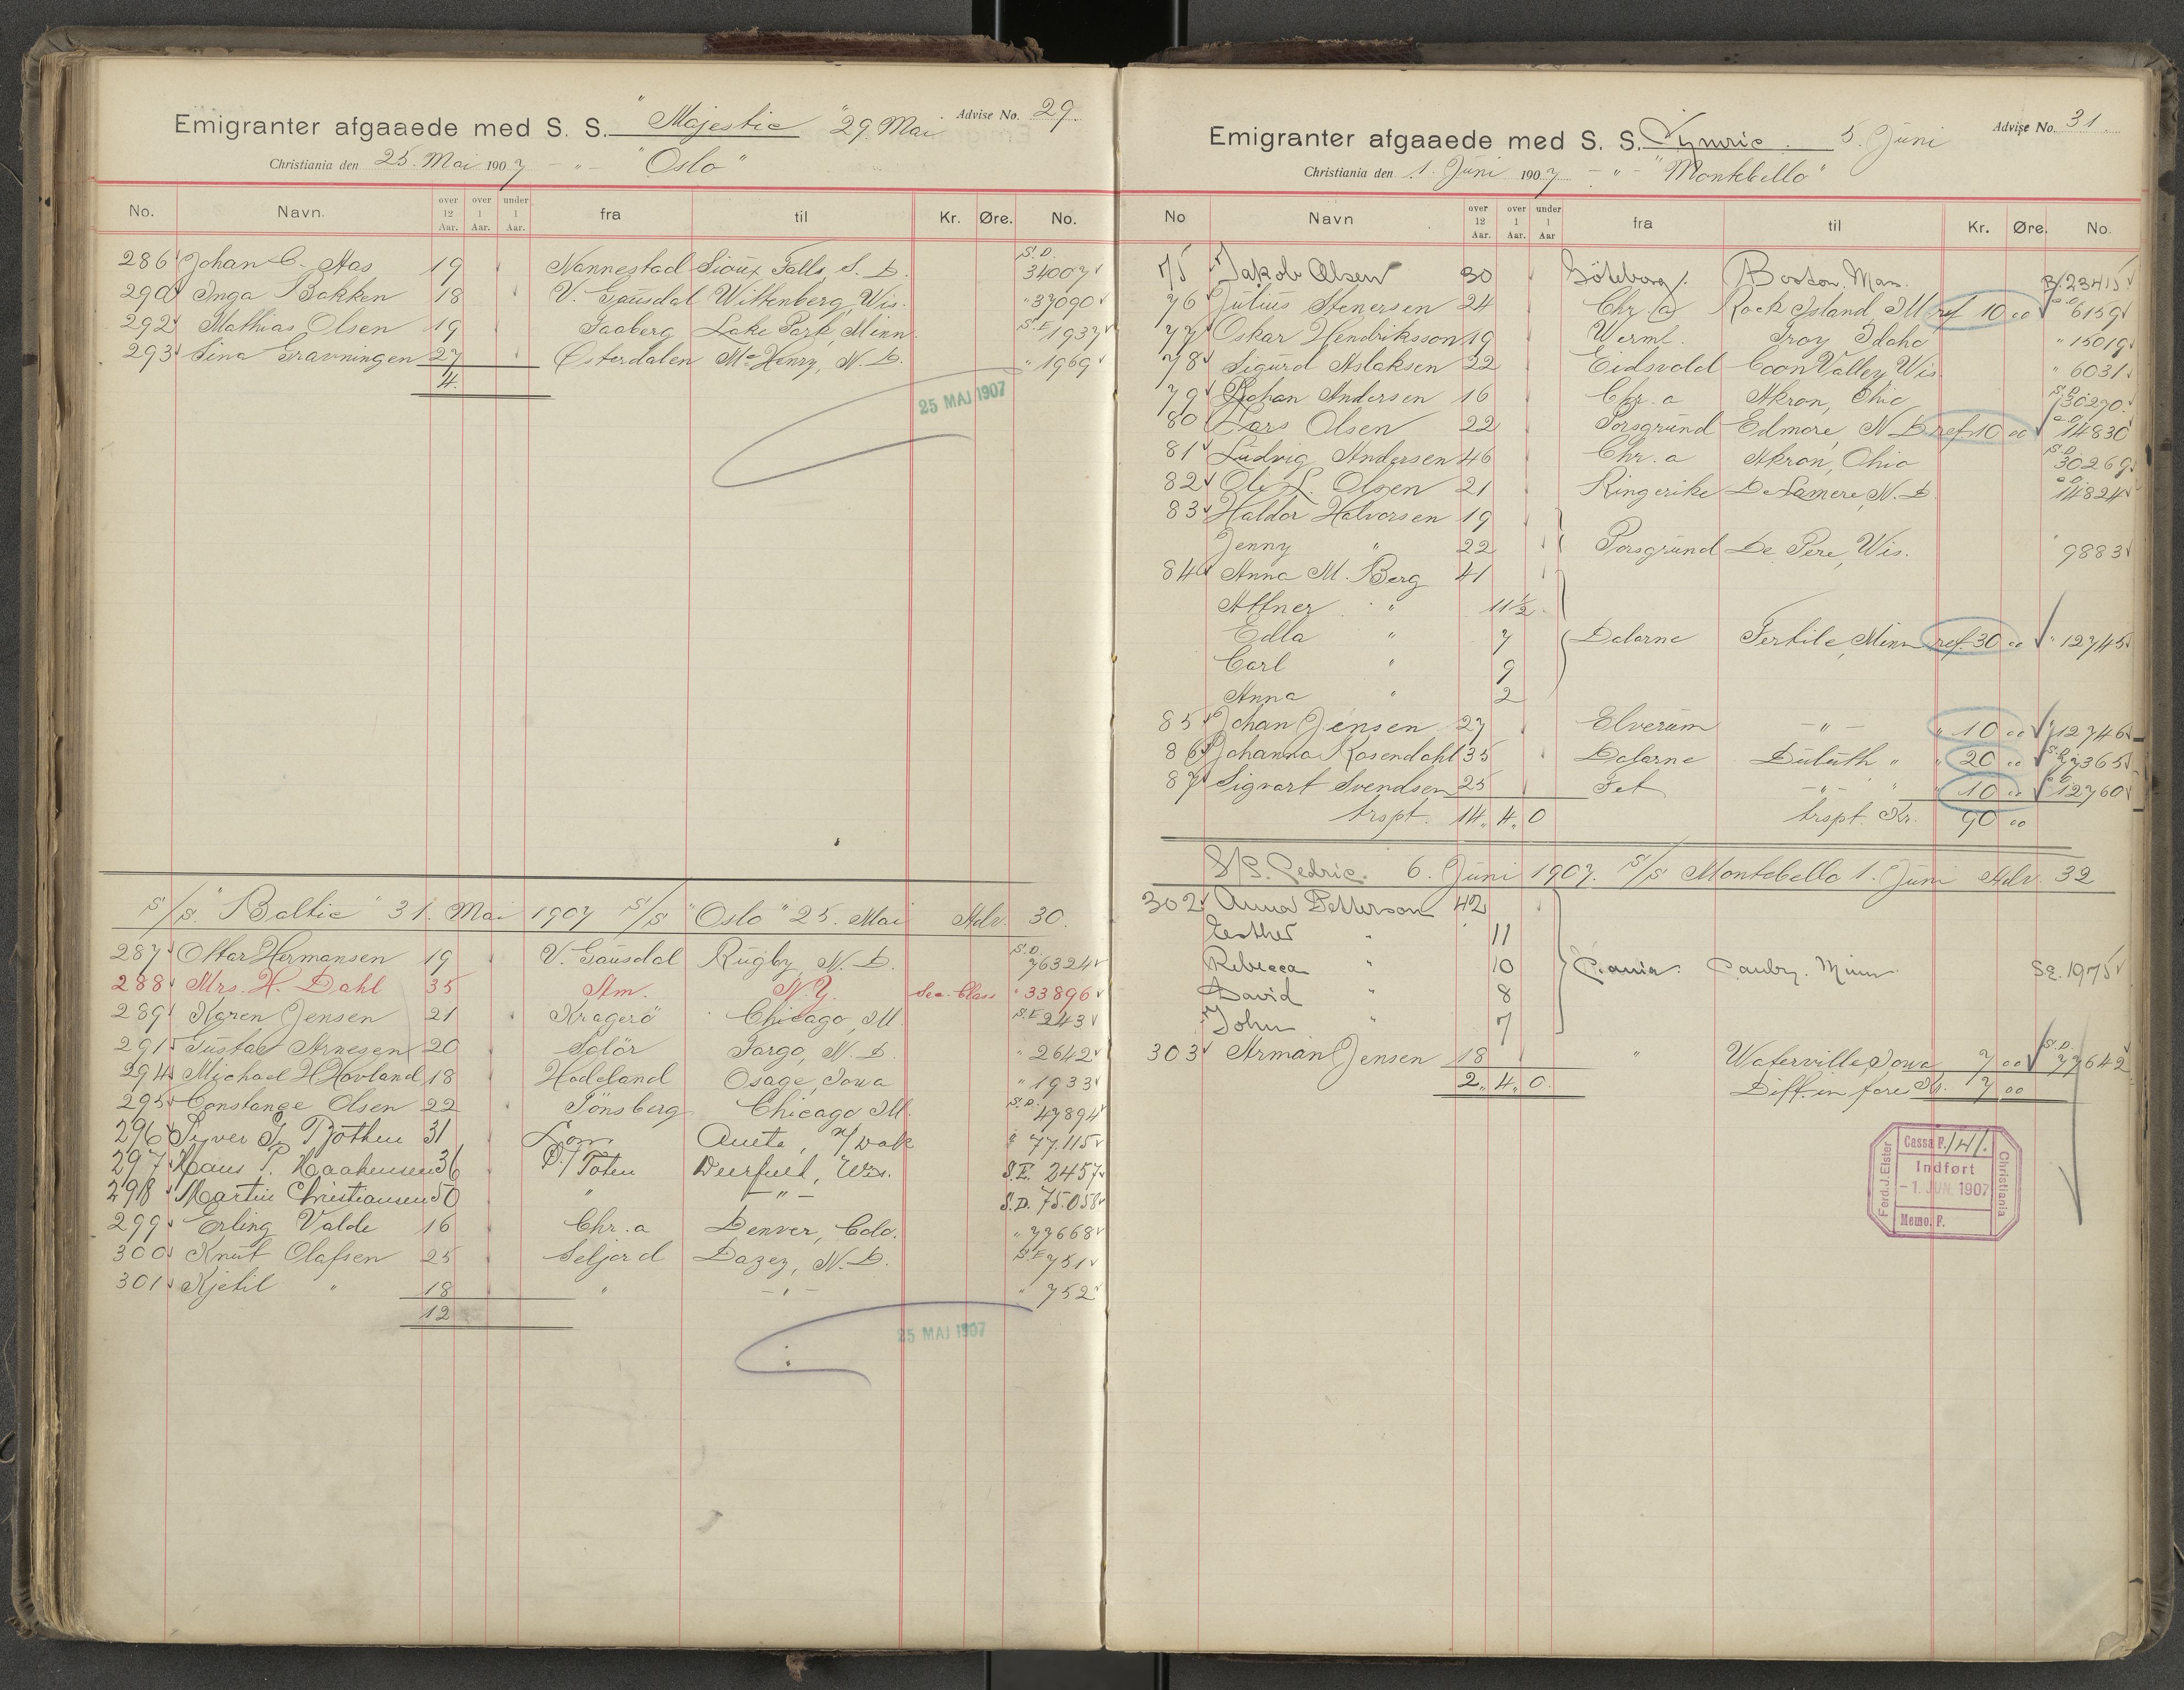 Emigranter afgaaede med S. S. "Majestic" 29. Mai Advise No. 29.
Christiania den 25. Mai 1907 - " - "Oslo"
No. Navn. over 12 Aar. over 1 Aar. under 1 Aar. fra til Kr. Øre. No.
286 Johan C. Aas 19 Nannestad Sioux Falls, S. D. S.D. 34007
290 Inga Bakken 18 V. Gausdal Wittenberg, Wis. " 37090
292 Mathias Olsen 19 Faaberg Lake Park, Minn. S.E. 1937
293 Sina Gravningen 27 Østerdalen McHenry, N. D. " 1969
4.
25 MAJ 1907
S/S. "Baltic" 31. Mai 1907 S/S "Oslo" 25. Mai Adv. 30.
287 Ottar Hermansen 19 V. Gausdal Rugby, N. D. S.D. 76324
288 Mrs. H. Dahl 35 Am. N.Y. Sec. Class " 33896
289 Karen Jensen 21 Kragerö Chicago, Ill. S.E. 243
291 Gustav Arnesen 20 Solör Fargo, N. D. " 2642
294 Michael H Hovland 18 Hadeland Osage, Iowa " 1933
295 Constance Olsen 22 Tönsberg Chicago Ill. S.D. 47894
296 Syver 31 Lom Aneta, N/Dak " 77.115
297 Hans P. Haakensen 36 Ø/Toten Deerfield, Wis. S.E. 2457
298 Martin Christiansen 50 " - " - S.D. 75.058
299 Erling Valde 16 Chr. a Denver, Colo. " 77668
300 Knut Olafsen 25 Seljord Dazey, N. D. S.E. 751
301 Kjetil " 18 " - " - " 752
12
25 MAJ 1907
Emigranter afgaaede med S. S. Cymric. 5. Juni Advise No. 31.
Christiania den 1. Juni 1907 - " - "Montebello"
No Navn over 12 Aar. over 1 Aar. under 1 Aar fra til Kr. Øre. No.
75 Jakob Olsen 30 Göteborg Boston. Mass. B/23415
76 Julius Stenersen 24 Chr. a Rock Island, Ill ref 10 00 6159
77 Oskar Hendriksson 19 Werml. Troy Idaho " 15019
78 Sigurd Aslaksen 22 Eidsvold Coon Valley Wis. " 6031
79 Johan Andersen 16 Chr. a Akron, Ohio S.D. 30270
80 Lars Olsen 22 Porsgrund Edmore, N. D. ref 10 00 14830
81 Ludvig Andersen 46 Chr. a Akron, Ohio S.D. 30269
82 Ole L. Olsen 21 Ringerike De Lamere, N. D. 14824
83 Haldor Halvorsen 19
Jenny " 22 Porsgrund De Pere, Wis. " 9883
84 Anna M. Berg 41
" 11 1/2
Edla " 7 Dalarne Fertile, Minn ref. 30 00 " 12745
Carl " 9
Anna " 2
85 Johan Jensen 27 Elverum - " - " 10 00 12746
86 Johanna Rosendahl 35 Dalarne Duluth " " 20 00 77365
87 Sigvart Svendsen 25 Fet - " - " 10 00 12760
trspt. 14 " 4 " 0 trspt. Kr. 90 00
S/S. Cedric. 6. Juni 1907. S/S Montebello 1. Juni Adv. 32
302 Anna Petterson 42
Esther " 11
Rebecca " 10 Canby. Minn. S.E. 1975
David " 8
John " 7
303 Arman Jensen 18 " Waterville, Iowa 7 00 S.D. 77642
2 " 4 " 0. Diff. in fare Kr. 7 00
Ferd. J. Elster Christiania
Cassa F. 141.
Indført
-1. JUN. 1907
Memo. F.